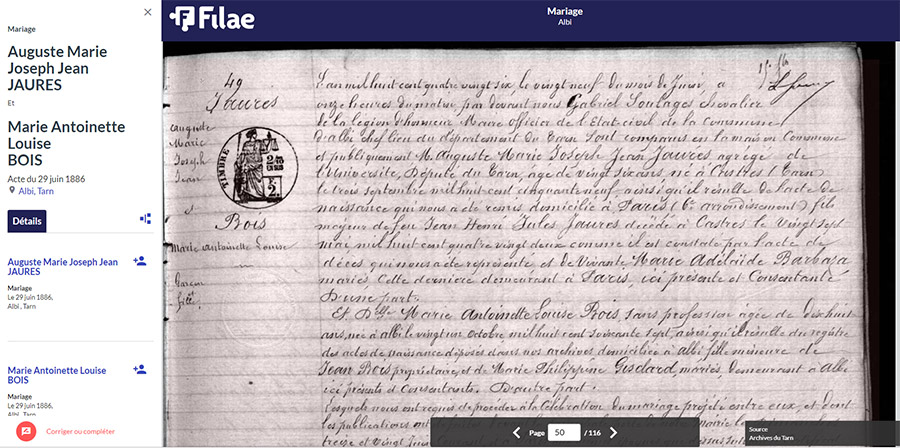 Mariage
Auguste Marie
Joseph Jean
JAURES
Et
Marie Antoinette
Louise
BOIS
Acte du 29 juin 1886
Albi, Tarn
Détails
Auguste Marie Joseph Jean
JAURES
Mariage
Le 29 juin 1886,
Albi , Tarn
Marie Antoinette Louise
BOIS
Mariage
Le 29 juin 1886,
Albi , Tarn
Corriger ou compléter
Filae
Mariage
Albi
49
Jaures
auguste
Marie
Joseph
Jean
et
TIMBRE
2
Bois
Marie Antoinette Louise
Garçon
fille
L'an mil huit cent quatre vingt six, le vingt neuf du mois de Juin, à
onze heures du matin, par devant nous Gabriel Soulages chevalier
de la légion d'honneur Maire officier de l'état civil de la commune
d'albi chef lieu du département du Tarn Sont comparus en la maison Commune
et publiquement M. Auguste Marie Joseph Jean Jaures agrégé de
l'université, Député du Tarn, âgé de vingt six ans, né à Castres (Tarn)
le trois septembre mil huit cent cinquante neuf, ainsi qu'il résulte de l'acte de
naissance qui nous a été remis domicilié à Paris (6e arrondissement) fils
majeur de feu Jean Henri Jules Jaures décédé à Castres le vingt sept
mai mil huit cent quatre vingt deux comme il est constaté par l'acte de
décès qui nous a été représenté, et de vivante Marie Adélaïde Barbaza
mariés, cette dernière demeurant à Paris, ici présente et Consentante
D'une part.
Et Dlle Marie Antoinette Louise Bois, sans profession âgée de dix huit
ans, née à albi le vingt un octobre mil huit cent soixante sept, ainsi qu'il résulte du registre
des actes de naissance déposés dans nos archives domiciliée à albi fille mineure de
Jean Bois propriétaire, et de Marie Philippine Gisclard, mariés, demeurant à Albi
ici présents et Consentants. D'autre part.
Lesquels nous ont requis de procéder à la Célébration du mariage projeté entre eux, et dont
les publications ont été
treize et vingt Juin
Page 50 / 116
Source
Archives du Tarn